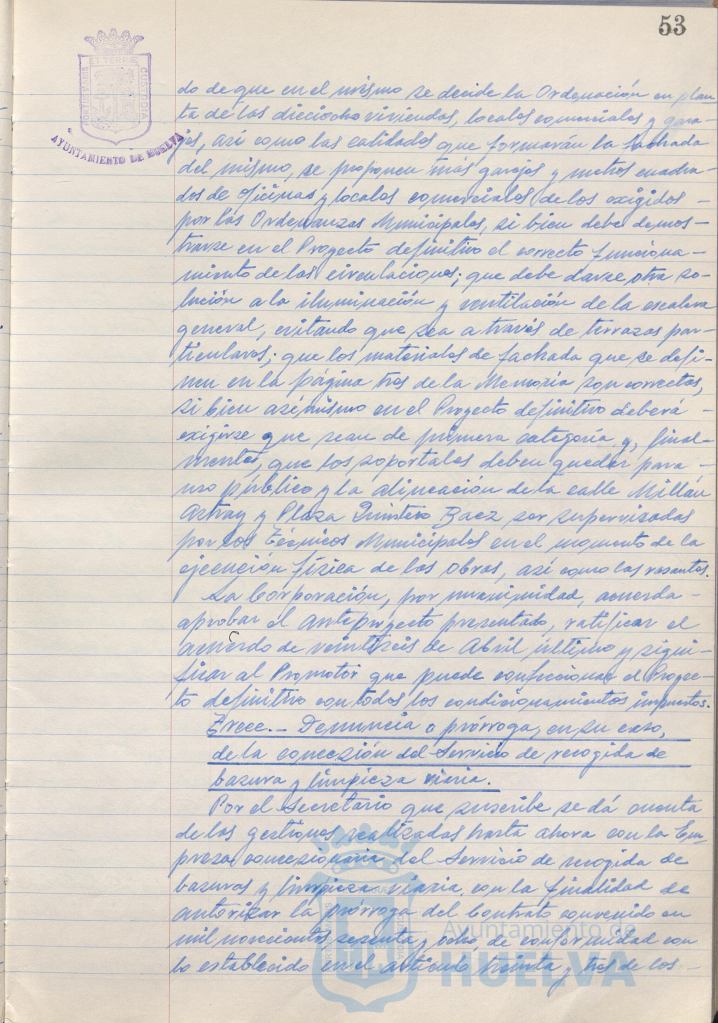 53
AYUNTAMIENTO DE HUELVA
do de que en el mismo se decide la Ordenación en plan-
ta de las dieciocho viviendas, locales comerciales y gara-
jes, así como las calidades que formarán la fachada
del mismo, se proponen más garajes y metros cuadra-
dos de oficinas y locales comerciales de los exigidos -
por las Ordenanzas Municipales, si bien debe demos-
trarse en el Proyecto definitivo el correcto funciona-
miento de las circulaciones; que debe darse otra so-
lución a la iluminación y ventilación de la escalera
general, evitando que sea a través de terrazas par-
ticulares; que los materiales de fachada que se defi-
nen en la página tres de la Memoria son correctos,
si bien asímismo en el Proyecto definitivo deberá -
exigirse que sean de primera categoría y, final-
mente, que los soportales deben quedar para -
uso público y la alineación de la calle Millán
Astray y Plaza Quintero Baez ser supervisadas
por los Técnicos Municipales en el momento de la
ejecución física de las obras, así como las rasantes.
La Corporación, por unanimidad, acuerda -
aprobar el anteproyecto presentado, ratificar el
acuerdo de veintiseis de Abril último y signi-
ficar al Promotor que puede confeccionar el Proyec-
to definitivo con todos los condicionamientos impuestos.
Trece.- Denuncia o prórroga, en su caso,
de la concesión del Servicio de recogida de
basura y limpieza viaria.
Por el Secretario que suscribe se dá cuenta
de las gestiones realizadas hasta ahora con la Em-
presa concesionaria del Servicio de recogida de
basuras y limpieza viaria, con la finalidad de
autorizar la prórroga del Contrato convenido en
mil novecientos sesenta y ocho, de conformidad con
lo establecido en el artículo treinta y tres de los -
Ayuntamiento de
HUELVA